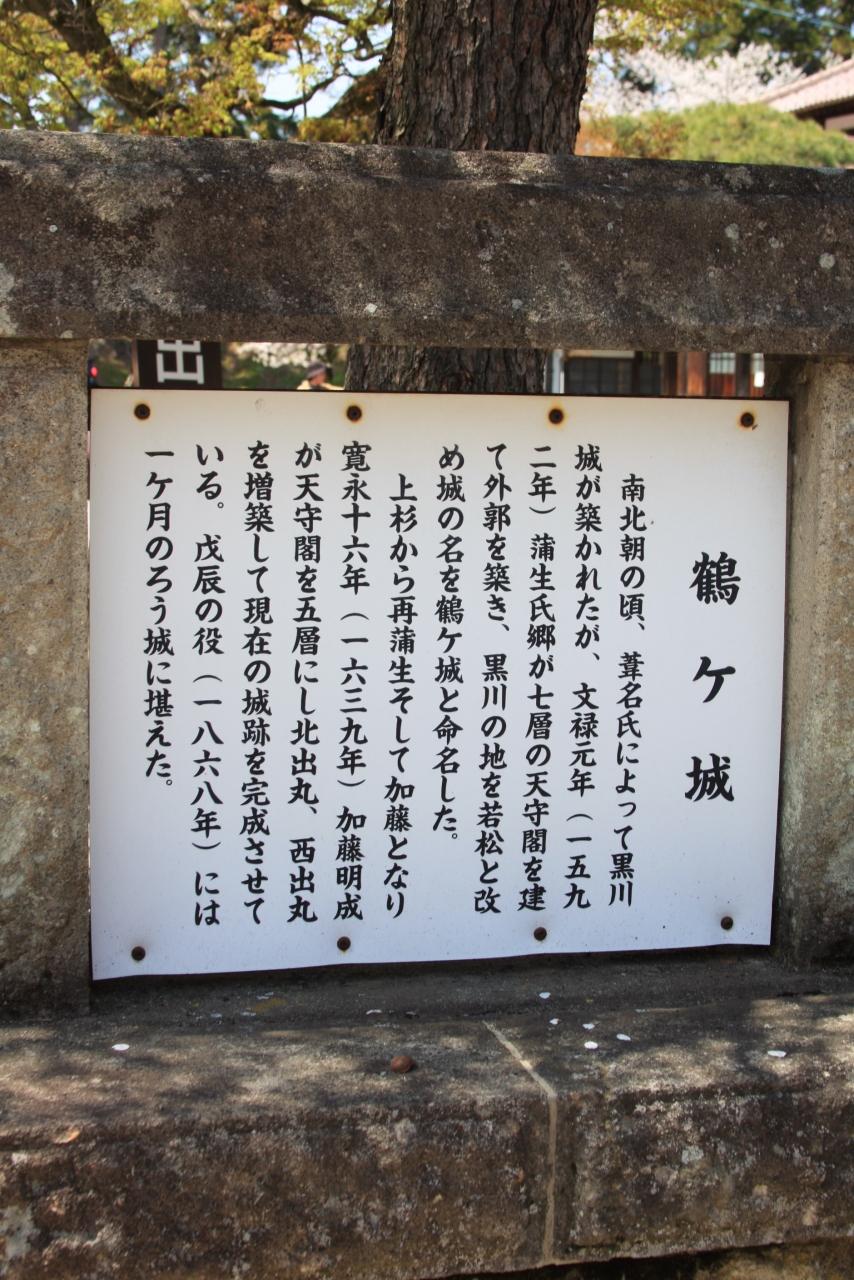 鶴ケ城
南北朝の頃、葦名氏によって黒川
城が築かれたが、文禄元年（一五九
二年）蒲生氏郷が七層の天守閣を建
て外郭を築き、黒川の地を若松と改
め城の名を鶴ケ城と命名した。
上杉から再蒲生そして加藤となり
寛永十六年（一六三九年）加藤明成
が天守閣を五層にし北出丸、西出丸
を増築して現在の城跡を完成させて
いる。戊辰の役（一八六八年）には
一ケ月のろう城に堪えた。
出